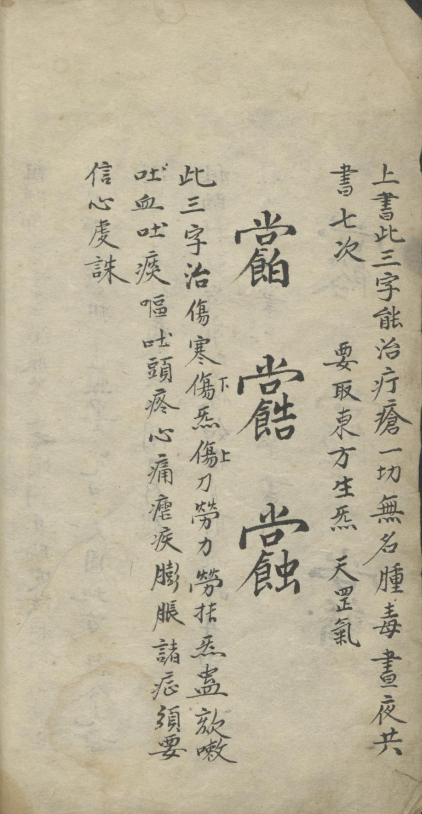 上書此三字能治疔瘡一切無名腫毒晝夜共
書七次　要取東方生炁　天罡氣
此三字治傷寒傷下炁傷上刀勞力勞炁欬嗽
吐血吐痰嘔吐頭疼心痛瘧疾膨脹諸症須要
信心虔誅